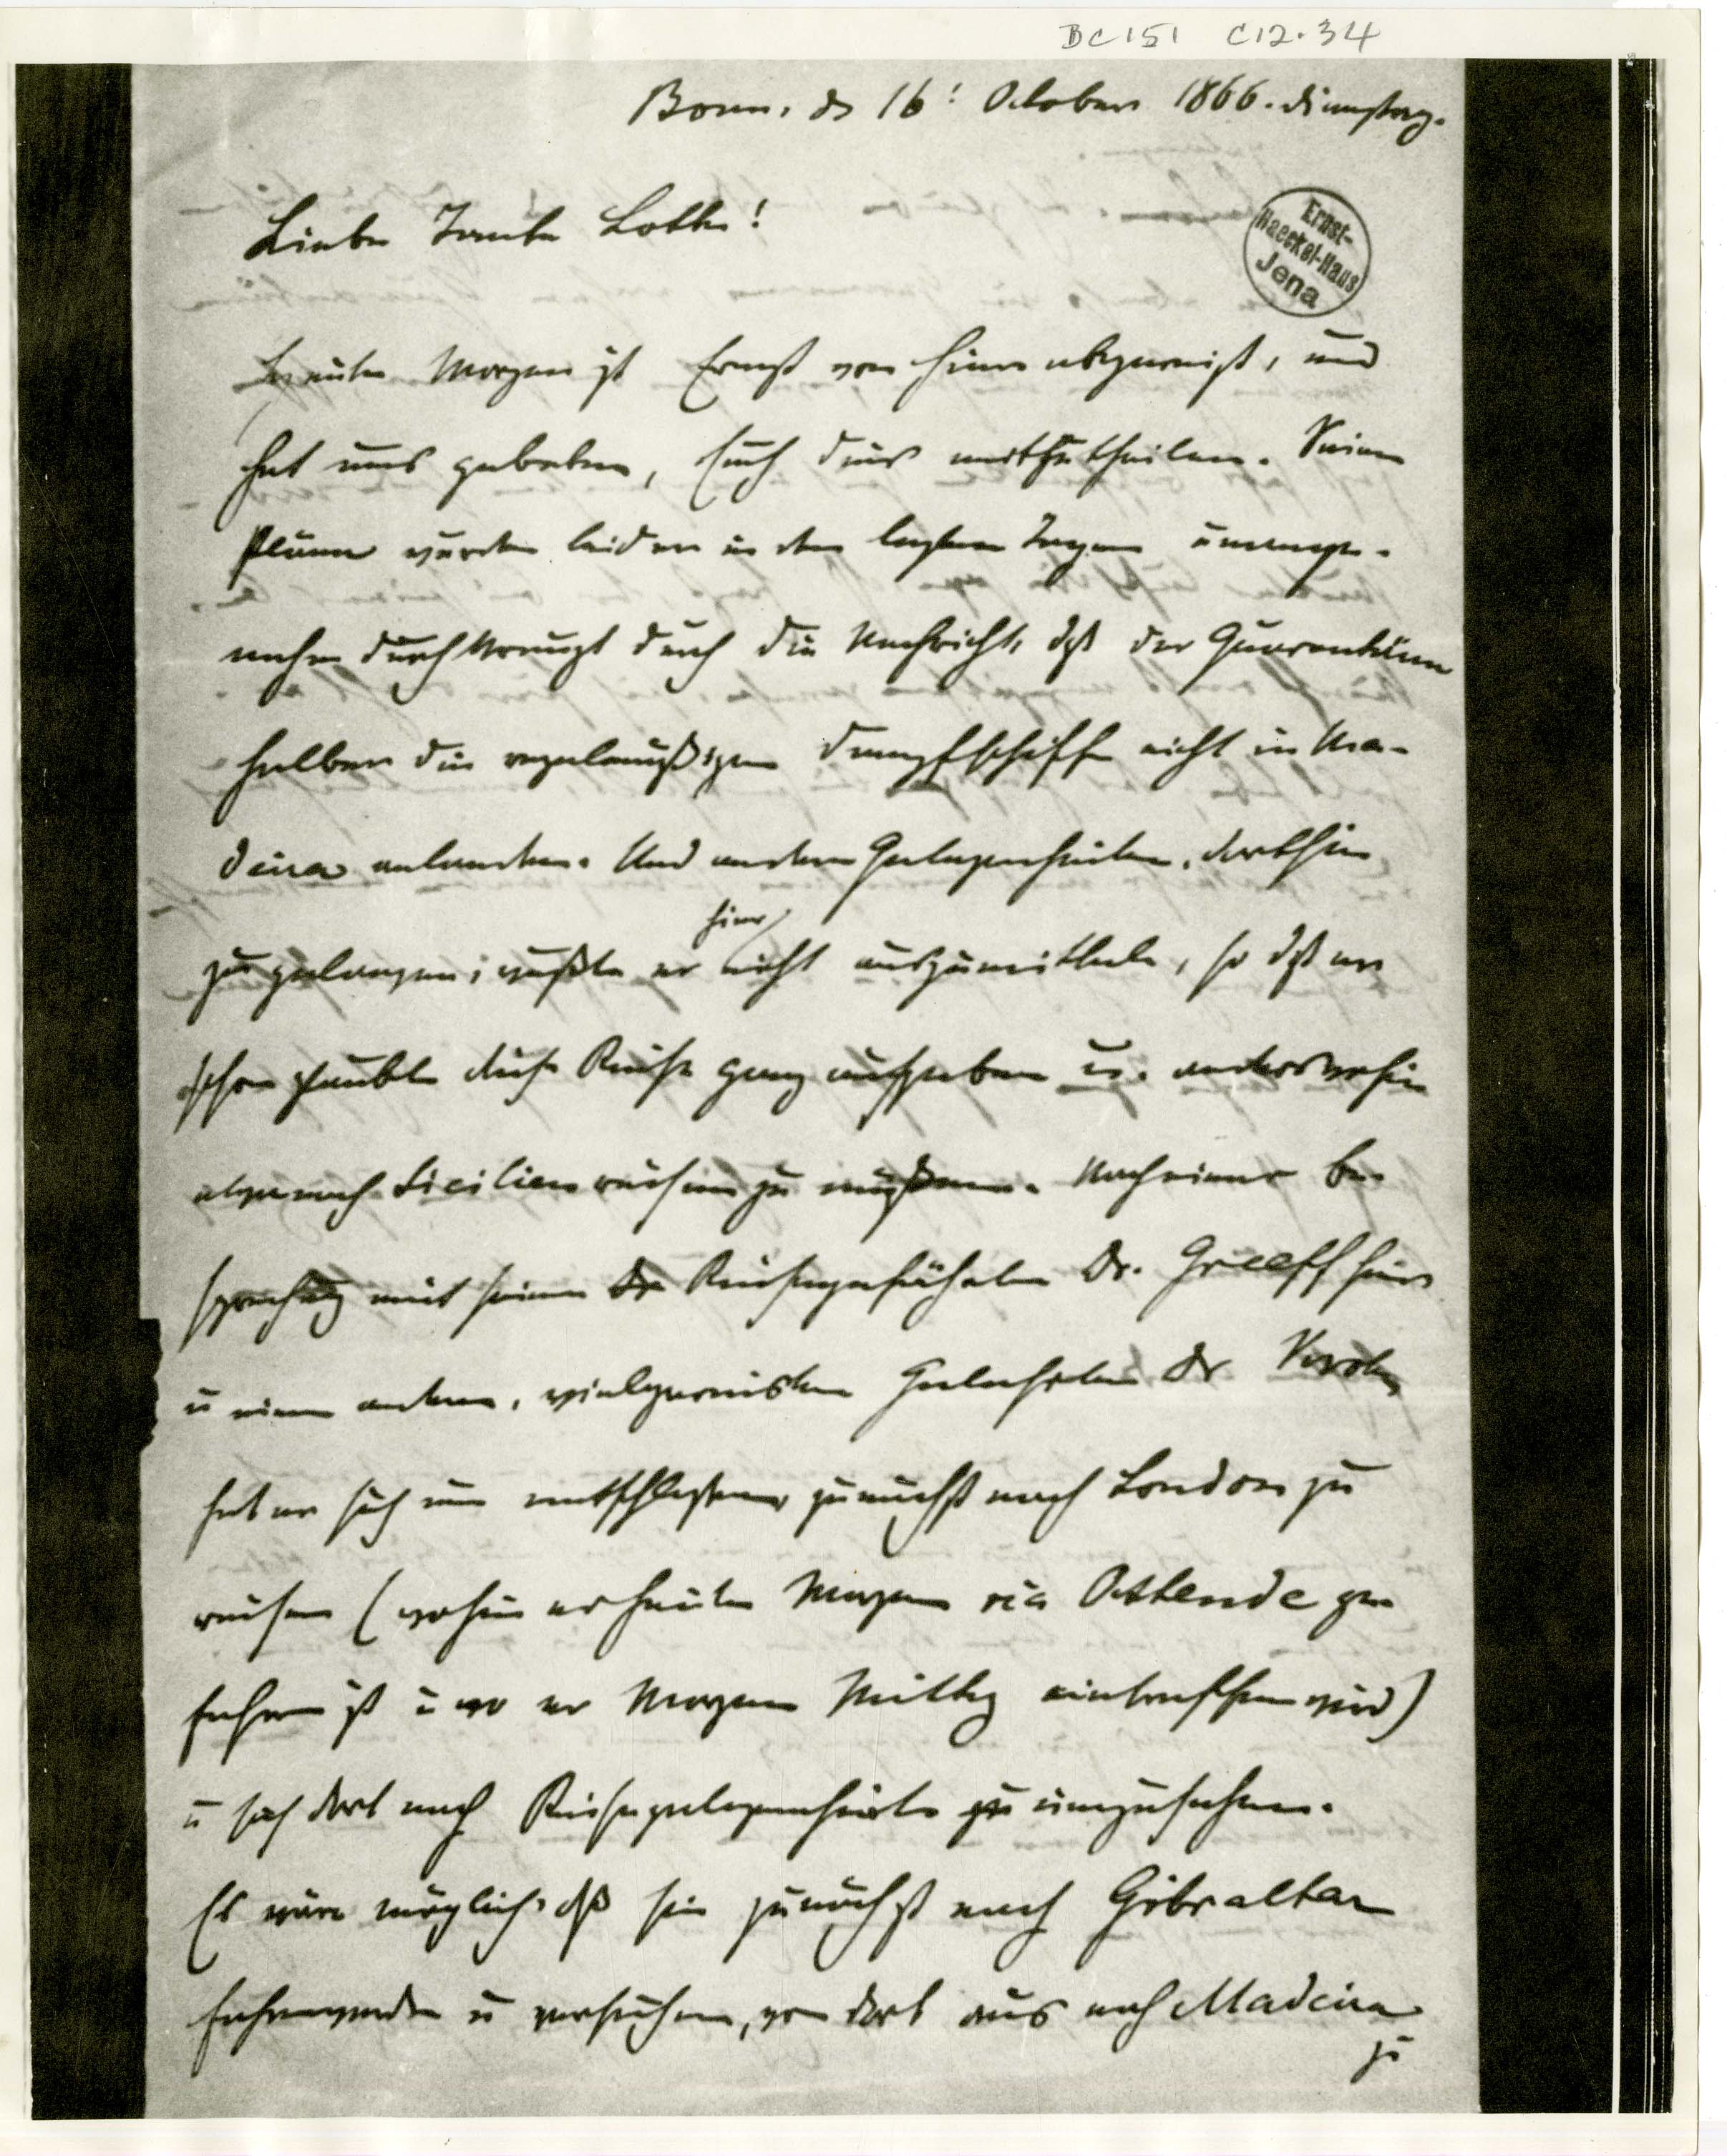 BC151 C12.34
Bonn, d 16! October 1866. Dienstag.
Liebe Tante Lotte!
Ernst-
Haeckel-Haus
Jena
Heute Morgen ist Ernst von hier abgereist, und
hat uns gebeten, Euch dies mitzutheilen. Seine
Pläne wurden leider in den letzten Tagen
durchkreuzt durch die Nachricht, dß der Quarantäne
halber die regelmäßigen Dampfschiffe nicht in Ma-
deira anlanden. Und andere Gelegenheiten, dorthin
hier
zu gelangen, wußte er nicht auszumitteln, so dß er
schon glaubte diese Reise ganz aufgeben u. anderswohin
etwa nach Sicilien reisen zu müßen. Nach einer Be-
sprechung mit seinem Reisegefährten Dr. Greeff hier
u einem andern, vielgereisten Gelehrten Dr
hat er sich nun entschloßen, zunächst nach London zu
reisen (wohin er heute Morgen via Ostende ge
fahren ist u wo er Morgen Mittag eintreffen wird)
u sich dort nach Reisegelegenheit umzusehen.
Es wäre möglich, dß sie zunächst nach Gibraltar
fahren werden u versuchen, von dort aus nach Madeira
zu